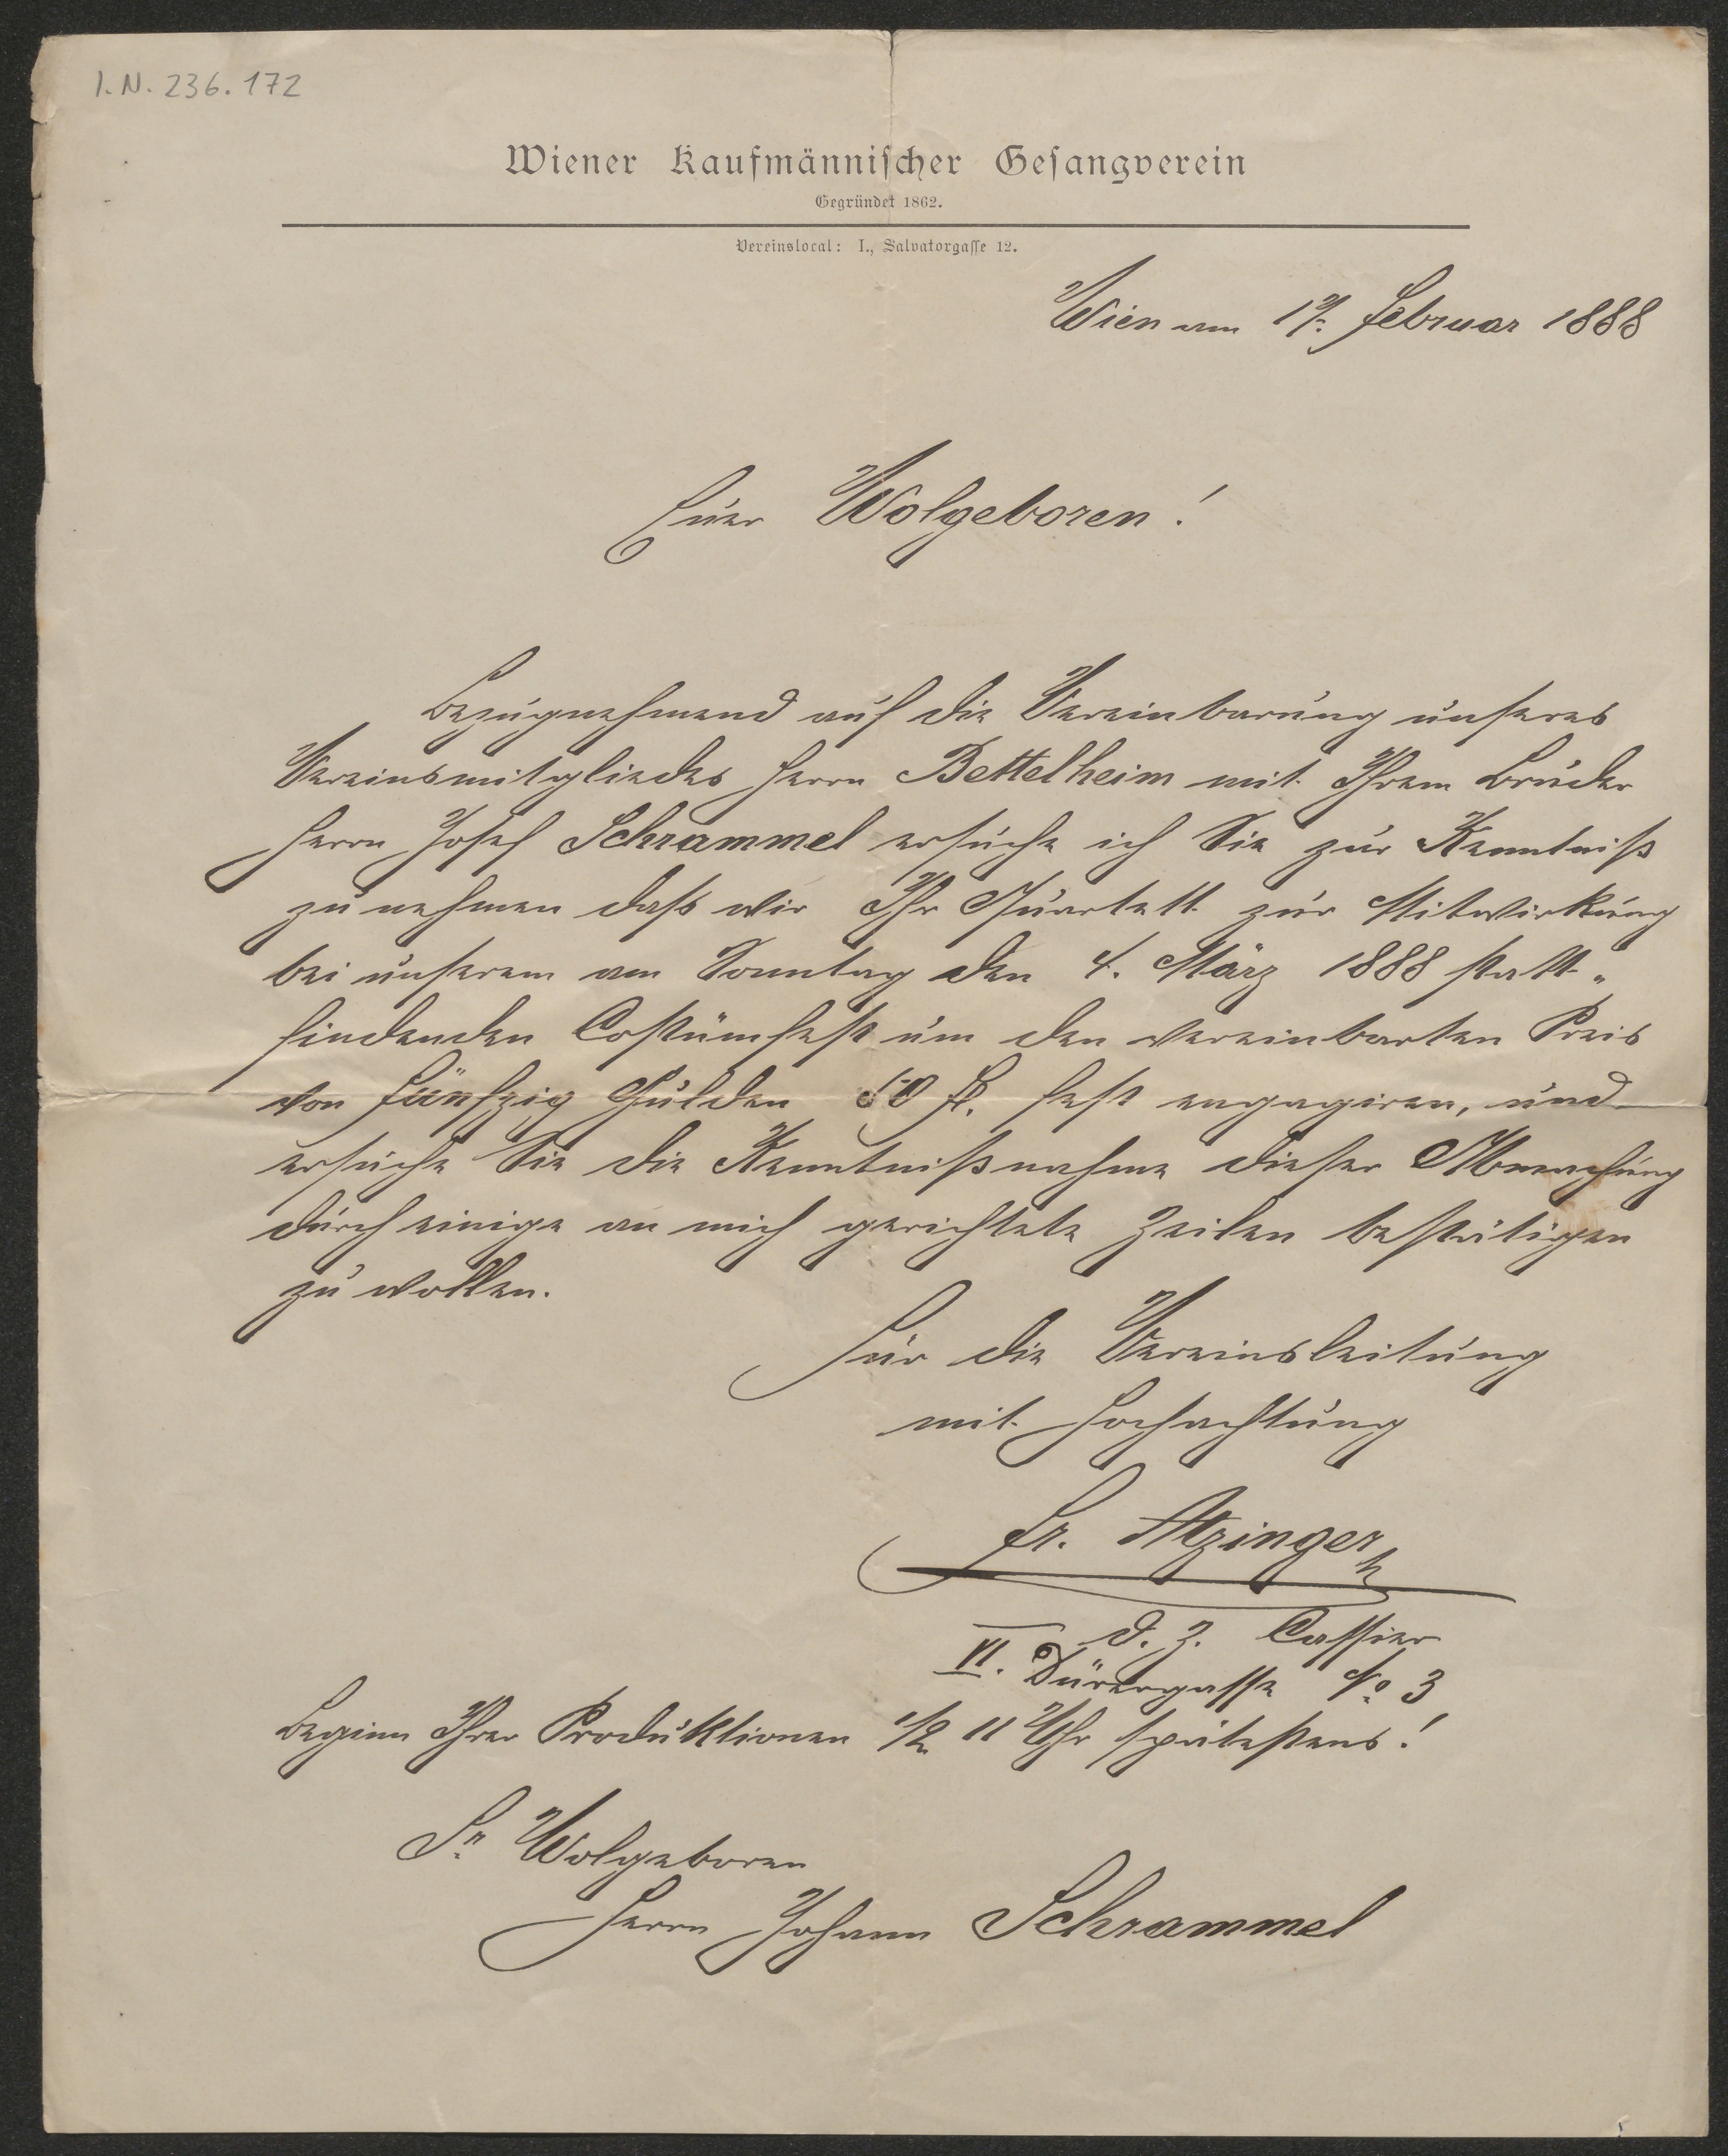 I.N. 236.172
Wiener Kaufmännischer Gesangverein
Gegründet 1862.
Vereinslocal: I., Salvatorgasse 12.
Wien am 17. Februar 1888
Euer Wolgeboren!
Bezugnehmend auf die Vereinbarung unseres
Vereinsmitgliedes Herrn Bettelheim mit Ihrem Bruder
Herrn Josef Schrammel ersuche ich Sie zur Kenntniß
zu nehmen daß wir Ihr Quartett zur Mitwirkung
bei unserem am Sonntag den 4. März 1888 statt-
findenden Costümfest um den vereinbarten Preis
von fünfzig Gulden 50 fl. fest engagiren, und
ersuche Sie die Kenntnißnahme dieser Abmachung
durch einige an mich gerichtete Zeilen bestätigen
zu wollen.
Für die Vereinsleitung
mit Hochachtung
Fr. Atzinger
d. Z. Cassier
VI. Dürergasse No 3
Beginn Ihrer Produktionen 1/2 11 Uhr spätestens!
Sr Wolgeboren
Herrn Johann Schrammel